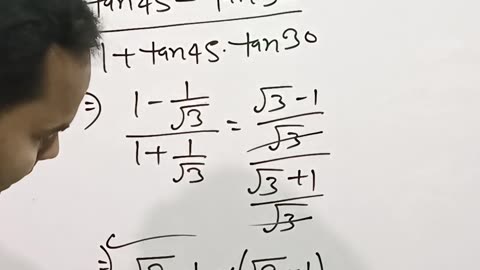 tan45 - tan3
1 + tan45 . tan30
⇒ (1 - 1/√3)/(1 + 1/√3) = ((√3 - 1)/√3)/((√3 + 1)/√3)
⇒